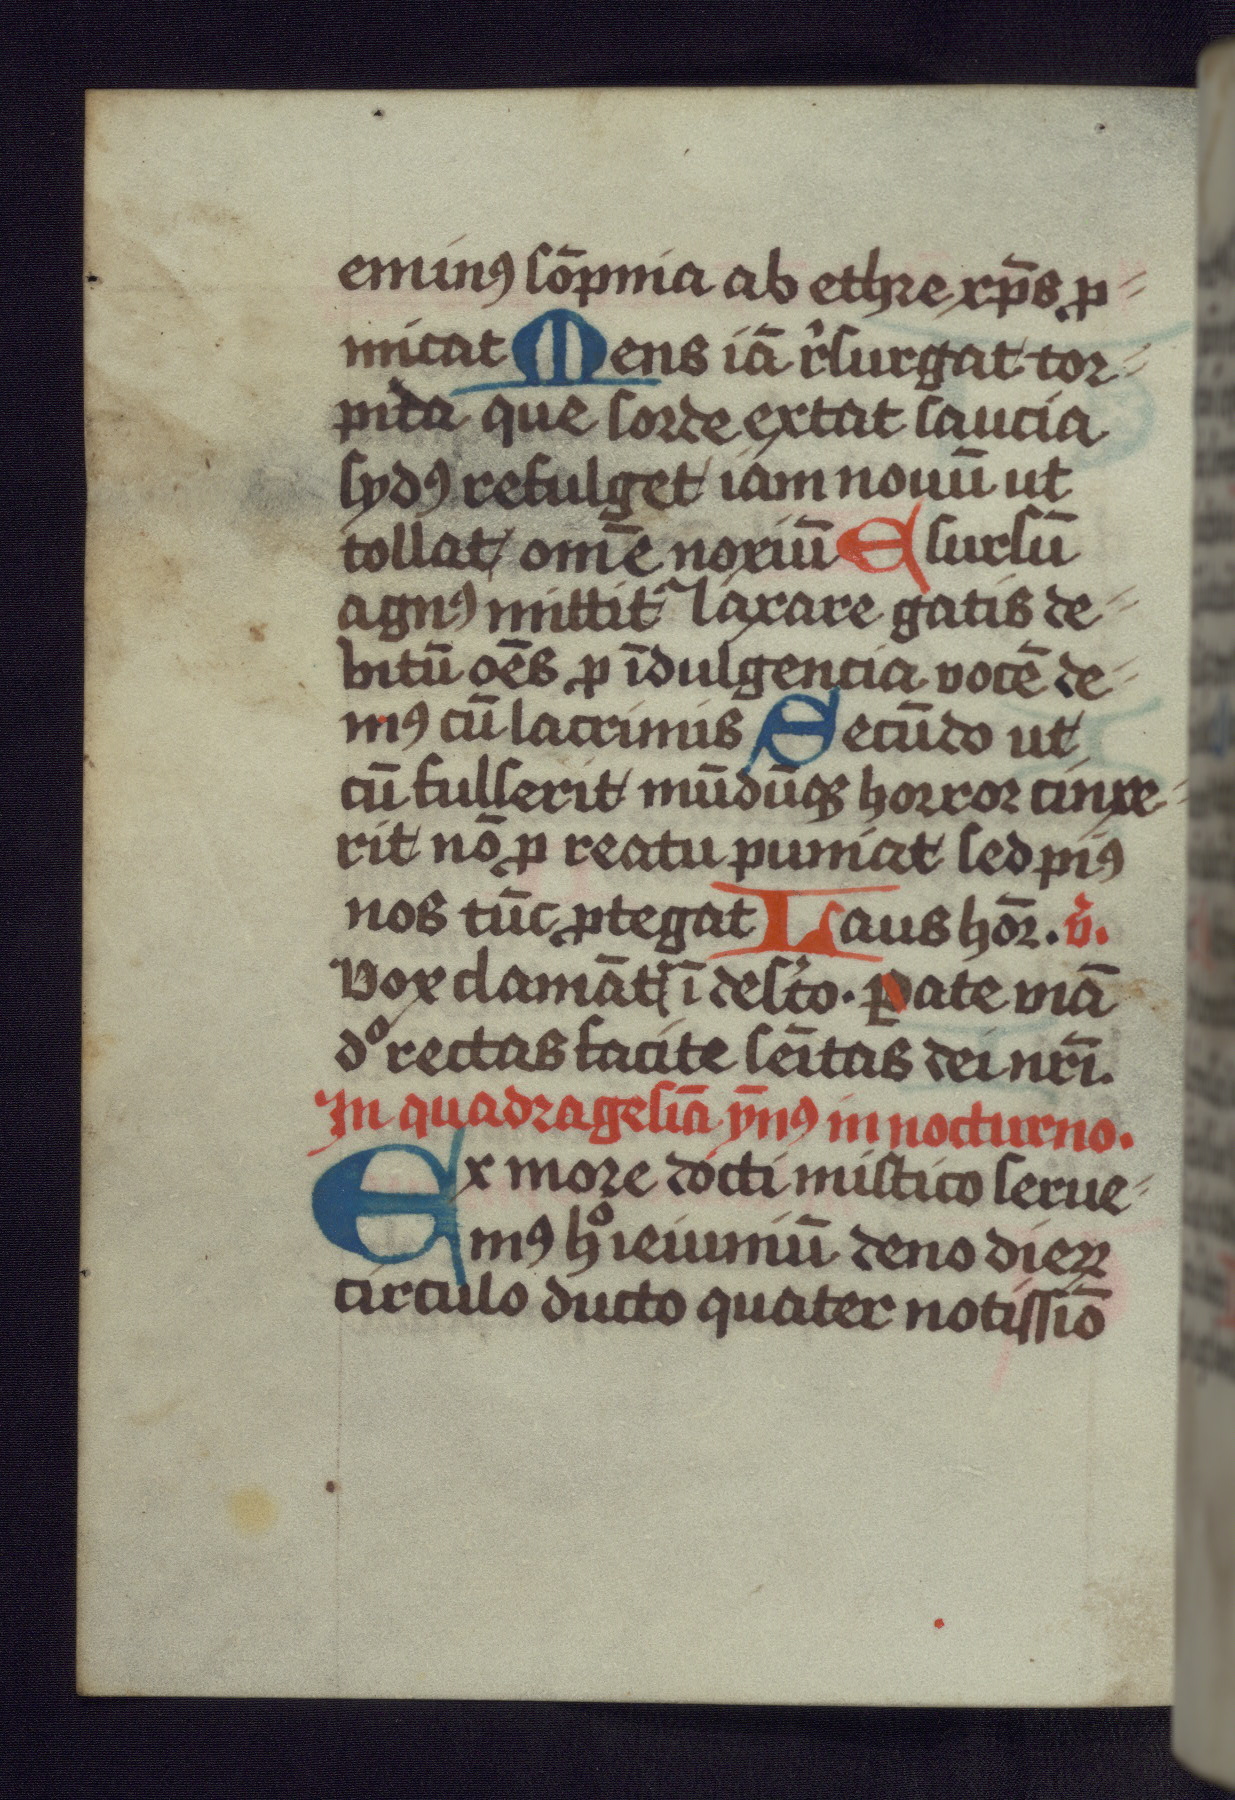 eminꝰ sōpnia ab ethre xp̄s ꝓ
micat Mens iā rͥsurgat tor
pida que sorde extat saucia
sydꝰ refulget iam nouū ut
tollat om̄e noxiū E sursū
agnꝰ mittit᷑ laxare gatis de
bitū oēs ꝓ īdulgencia vocē de
mꝰ cū lacrimis Secūdo ut
cū fulserit mūdūqꝫ horror cinxe
rit nō ꝓ reatu puniat sed piꝰ
nos tūc ꝓtegat Laus hōr. v̄.
Vox clamāt̉ ī des̉to. Pate viā
dᵒ rectas facite sēitas dei nr̄i.
In quadragesīā ȳnꝰ in nocturno.
Ex more docti mistico serue
mꝰ hᵒ ieiuniū deno dieꝝ
circulo ducto quater notissīo